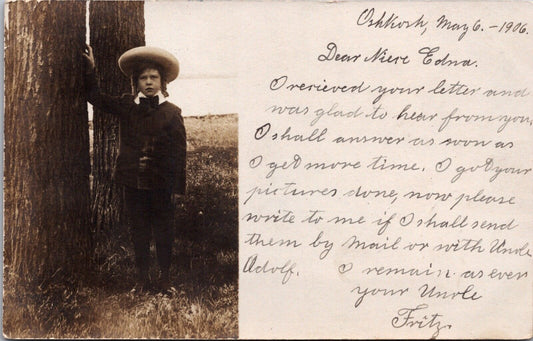 Oshkosh, May 6. - 1906.
Dear Niece Edna.
I recieved your letter and
was glad to hear from you,
I shall answer as soon as
I get more time. I got your
pictures done, now please
write to me if I shall send
them by mail or with Uncle
Adolf. I remain as ever
your Uncle
Fritz